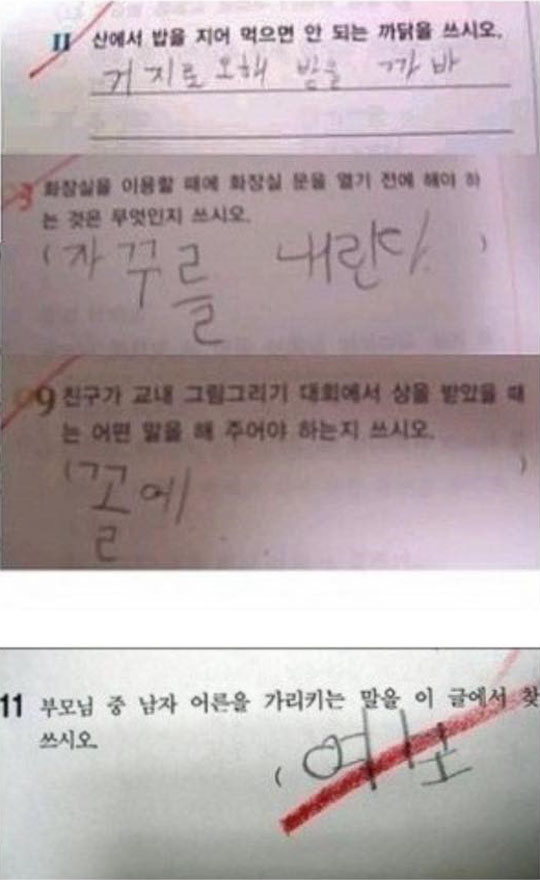 11 산에서 밥을 지어 먹으면 안 되는 까닭을 쓰시오.
거지로 오해 받을 까바
3 화장실을 이용할 때에 화장실 문을 열기 전에 해야 하
는 것은 무엇인지 쓰시오.
(자꾸를 내린다.)
9 친구가 교내 그림그리기 대회에서 상을 받았을 때
는 어떤 말을 해 주어야 하는지 쓰시오.
(꼴에)
11 부모님 중 남자 어른을 가리키는 말을 이 글에서 찾
쓰시오.
(여보